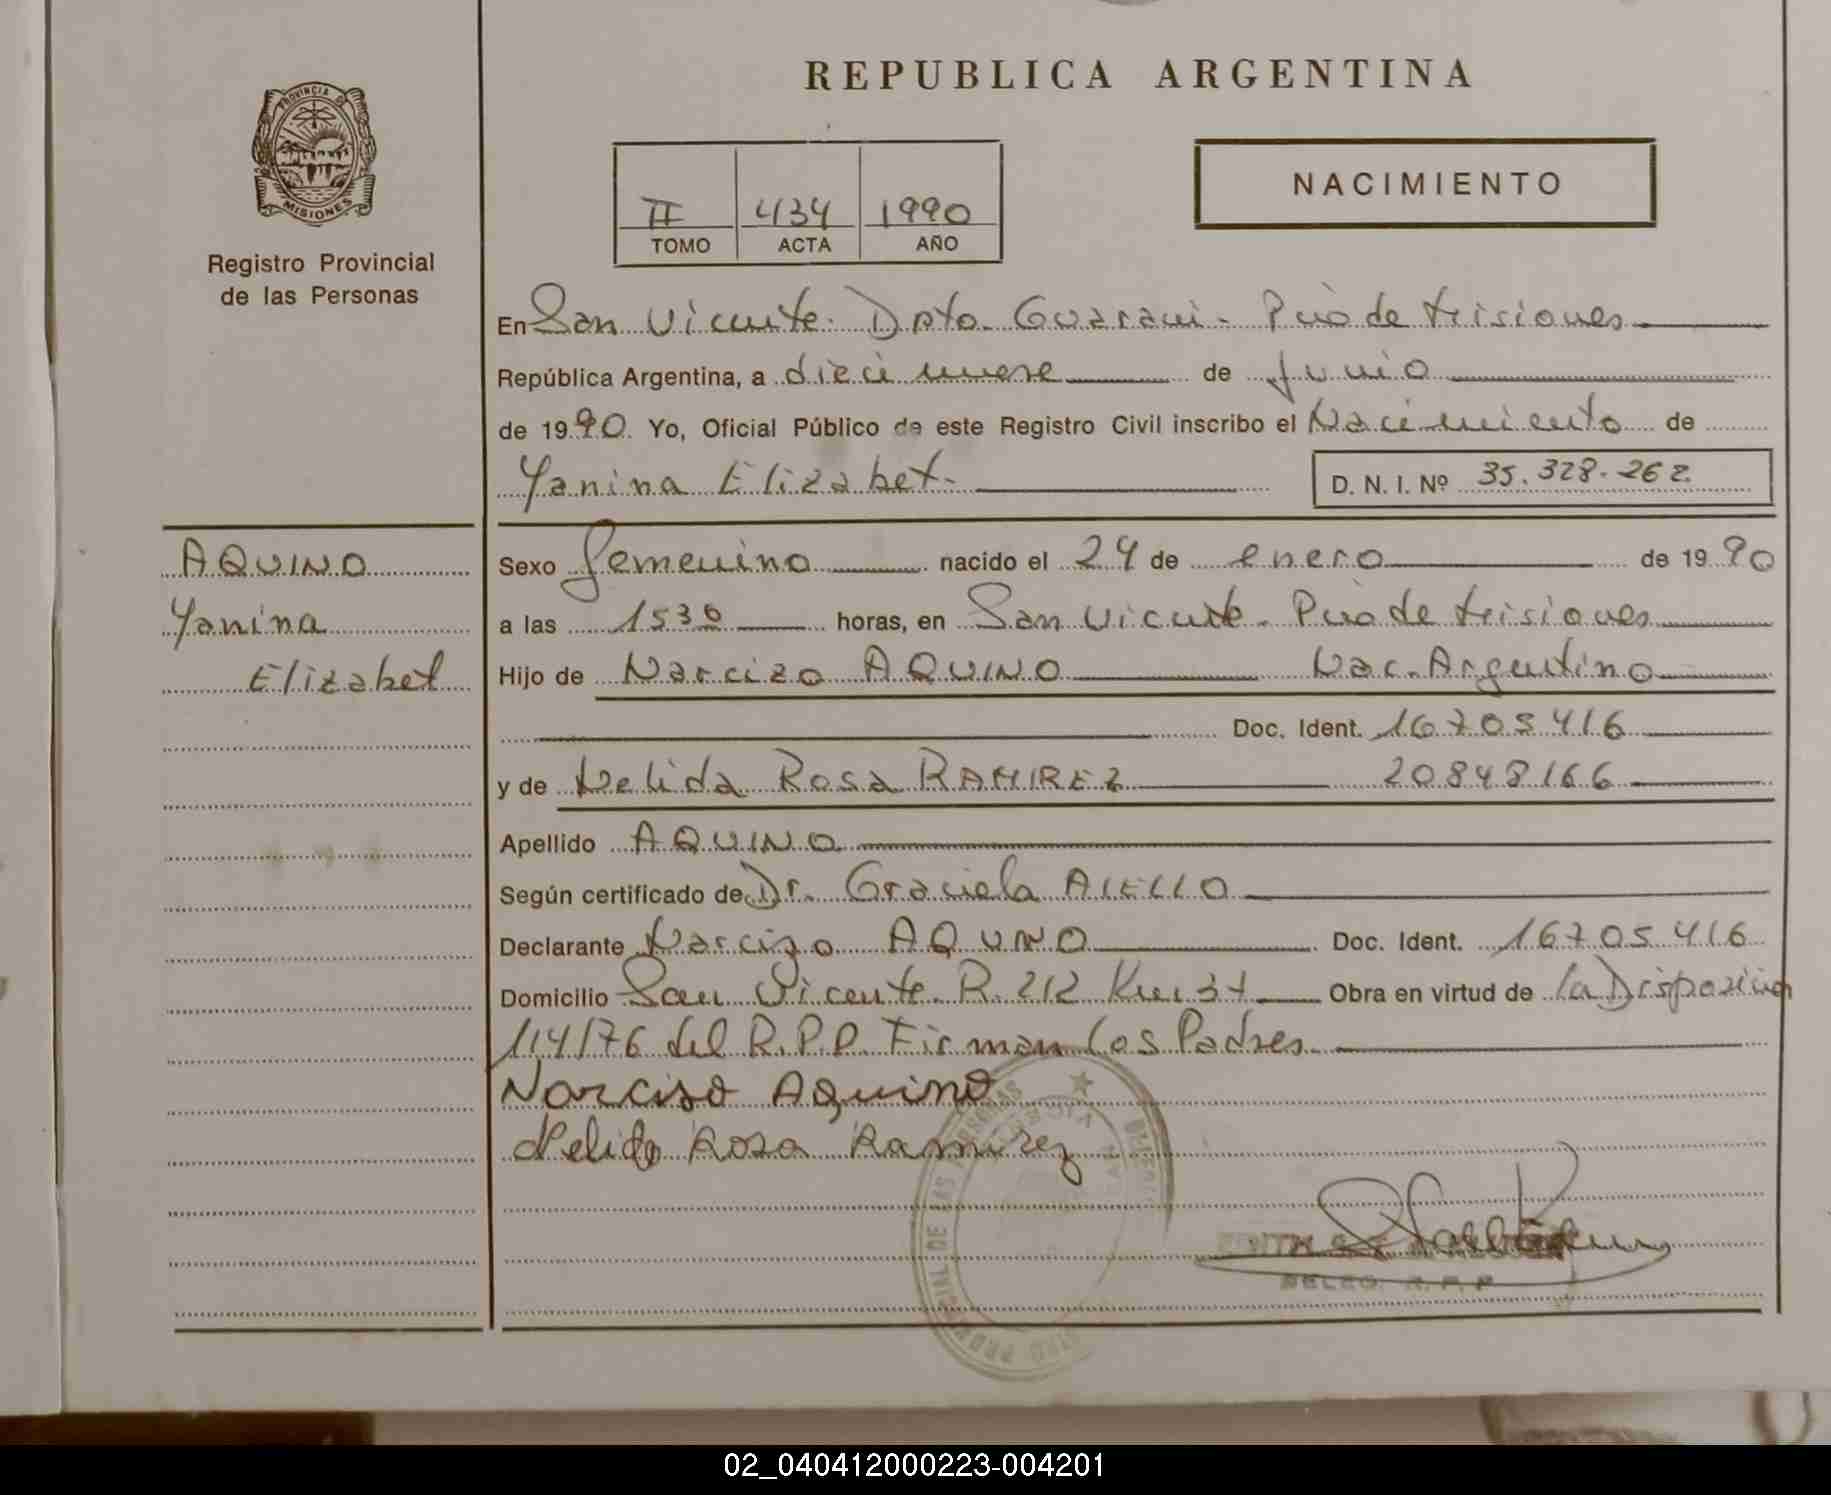 REPUBLICA ARGENTINA
PROVINCIA D
MISIONES
Registro Provincial
de las Personas
NACIMIENTO
II 434 1990
TOMO ACTA AÑO
En San Vicente. Dpto. Guarani. Pcia de Misiones
República Argentina, a dieci nueve de Junio
de 1990. Yo, Oficial Público de este Registro Civil inscribo el Nacimiento de
Yanina Elizabet.
D. N. I. Nº 35.328.262
AQUINO
Yanina
Elizabet
Sexo femenino nacido el 24 de enero de 1990
a las 1530 horas, en San Vicente. Pcia de Misiones
Hijo de Narcizo AQUINO Nac. Argentino
Doc. Ident. 16705416
y de Nelida Rosa RAMIREZ 20848166
Apellido AQUINO
Según certificado de Dr. Graciela AIELLO
Declarante Narcizo AQUINO Doc. Ident. 16705416
Domicilio San Vicente R. 212 Km 37 Obra en virtud de la Disposicion
114/76 del R.P.P. Firman los Padres
Narciso Aquino
Nelida Rosa Ramirez
DELEG. R.P.P
02_040412000223-004201